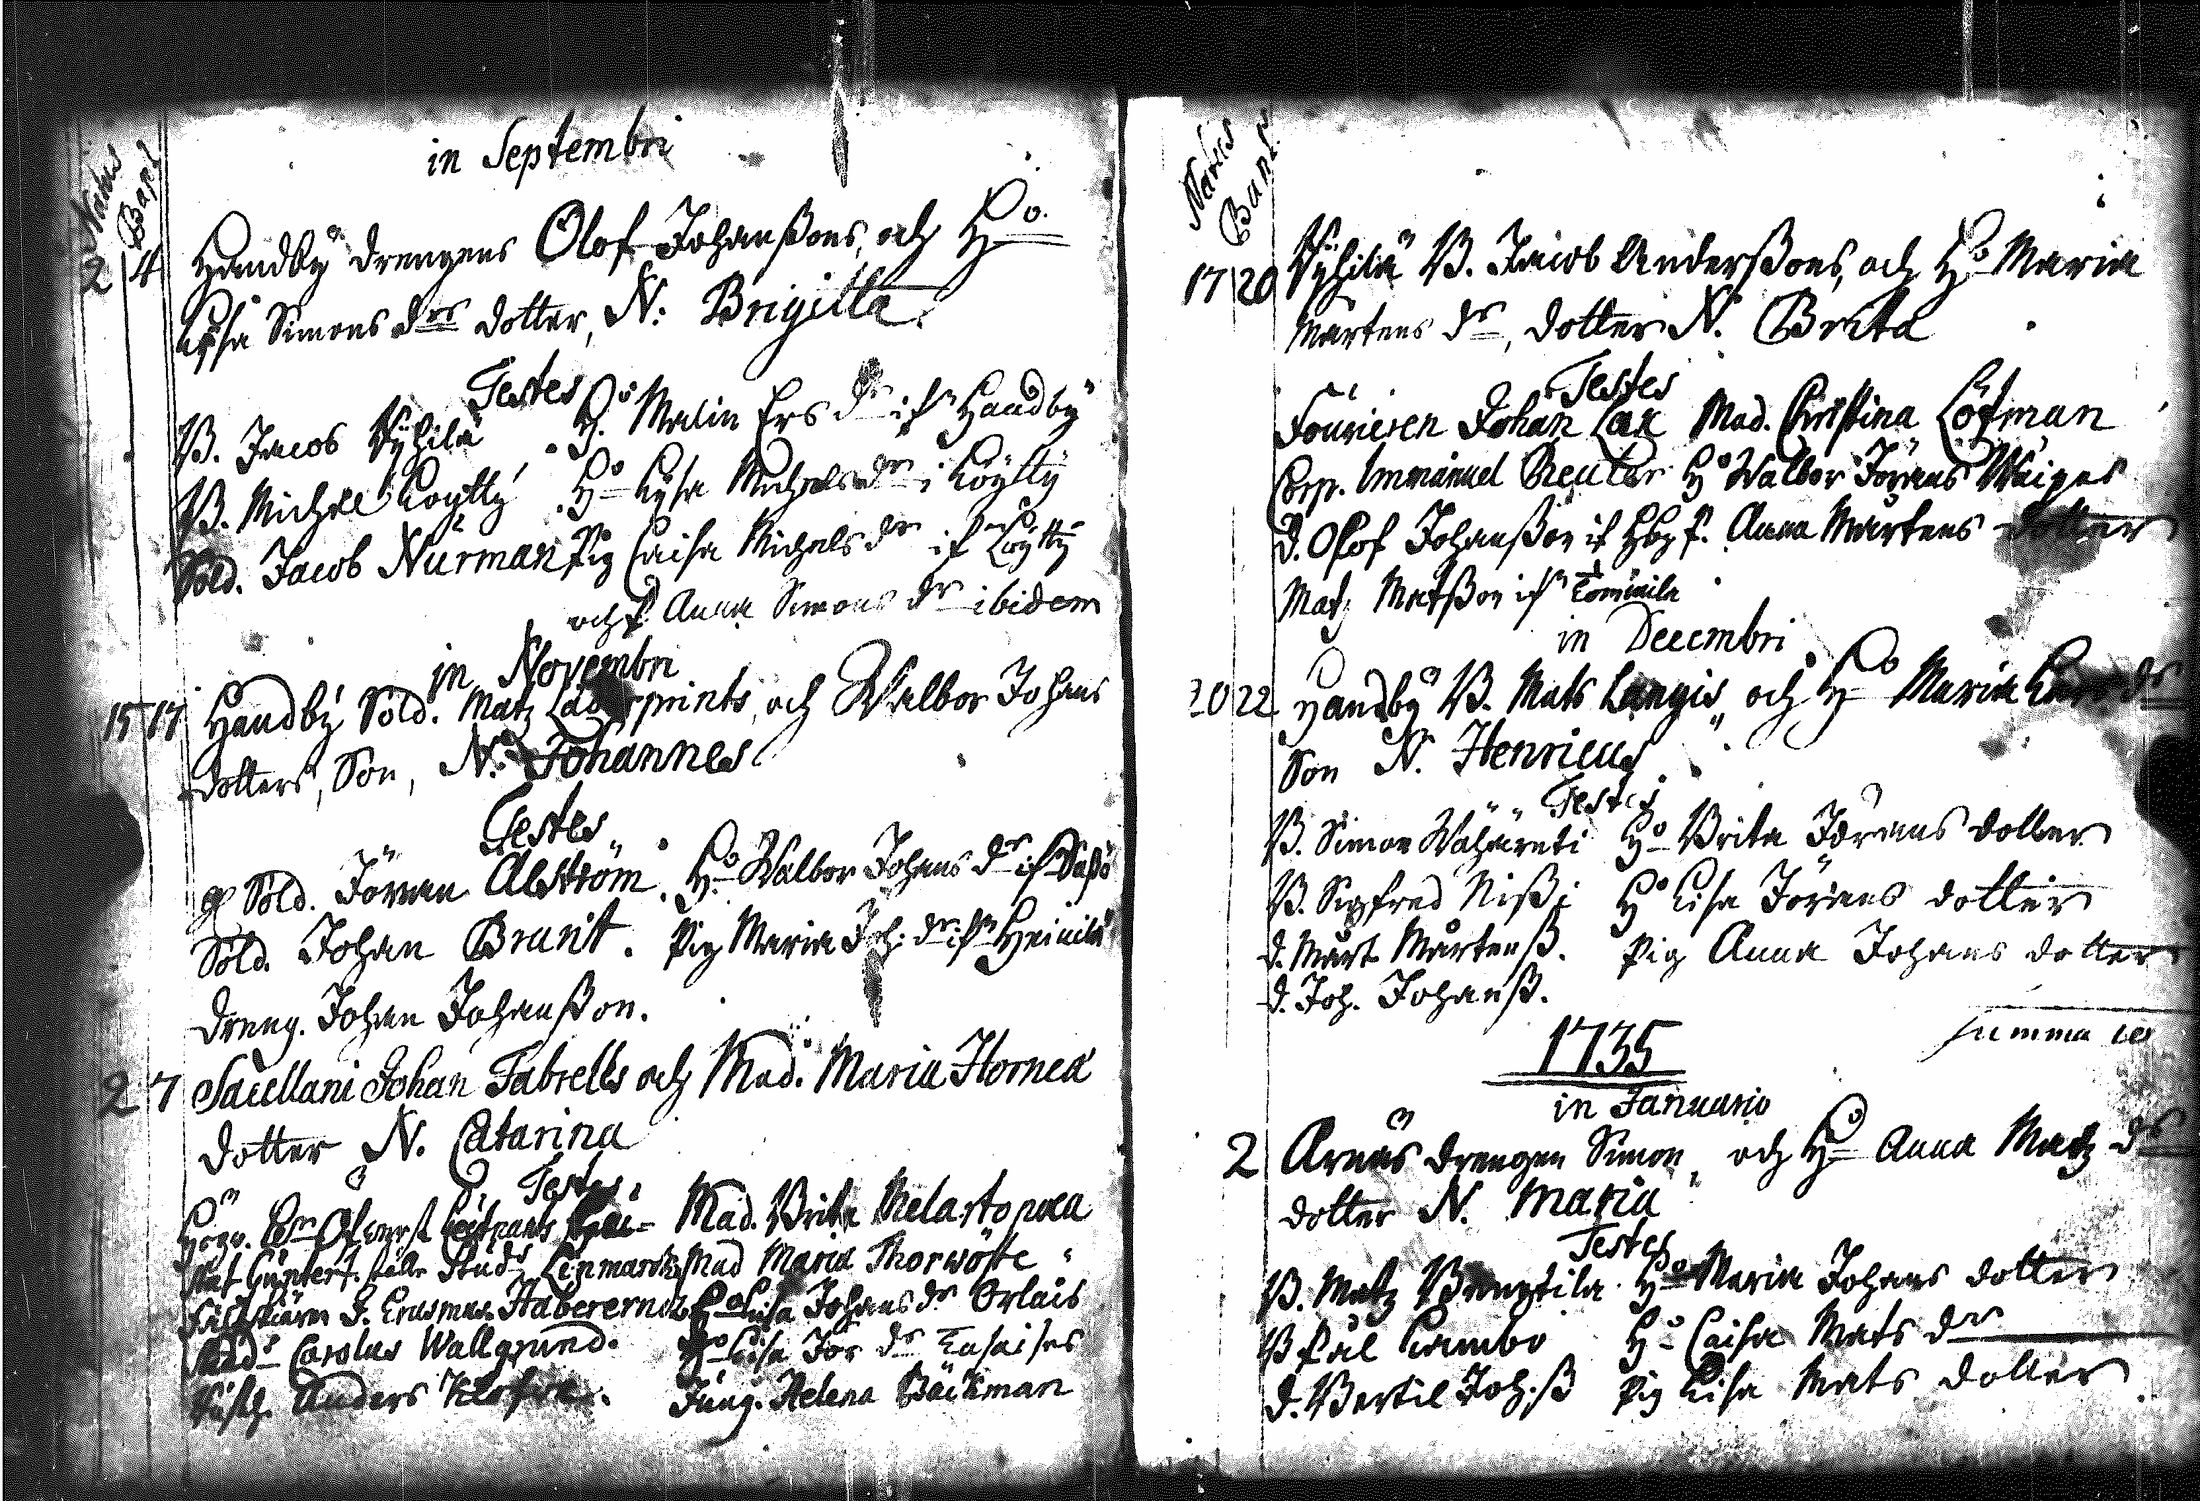 in Septembri
Natus
Bapt
2 4 Handby drengens Olof Johanßons, och Ho
Lysa Simons drs dotter, N: Brigitta
Testes
B. Jacob Pyhilä H. Malin Ers dr if Handby
B. Michel Löytty Ho Lysa Michels dr i Löytty
Sold. Jacob Nurman Pig Caisa Michels dr if Löytty
och P. Anna Simons dr ibidem
in Novembri
15 17 Handby Sold. Matz och Walbor Johans
dotters, Son, N. Johannes
Testes
Sold. Jöran Alström. Ho Walbor Johans dr if
Sold. Johan Brunt. Pig Maria Joh. dr if Heinilä
Dreng. Johan Johanßon.
2 7 Sacellani Johan Fabrelis och Mad. Maria Hornea
dotter N. Catarina
Testes
Mad. Brita Melartopæa
Stud. Mad Maria Thorwöste
Erasmus Lisa Johans dr Orlais
Carolus Wallgrund. Lisa Jör dr
Anders Jung. Helena Bäckman
Natus
Bapt.
17 20 Pyhilä B. Jacob Anderßons, och Ho Maria
Mårtens dr, dotter N. Brita
Testes
Fourieren Johan Lax Mad. Christina Löfman
Corp. Immanuel Reuter Ho Walbor Jörans
d. Olof Johanßon if P. Anna Mårtens dotter
Matz Matßon if Tommila
in Decembri
20 22 Handby B. Mats Langis, och Ho Maria drs
Son N. Henricus
Testes
B. Simon Wähärnti Ho Brita Jörans dotter
B. Sigfred Nißi Ho Lisa Jörans dotter
d. Mårt Mårtenß. Pig Anna Johans dotter
d. Joh. Johanß.
Summa
1735
in Januario
2 Arnäs drengen Simon, och Ho Anna Matz drs
dotter N. Maria
Testes
B. Matz Ho Maria Johans dotter
B Pål Cambo Ho Caisa Mats dr
d. Bertil Joh:ß Pig Lisa Mats dotter